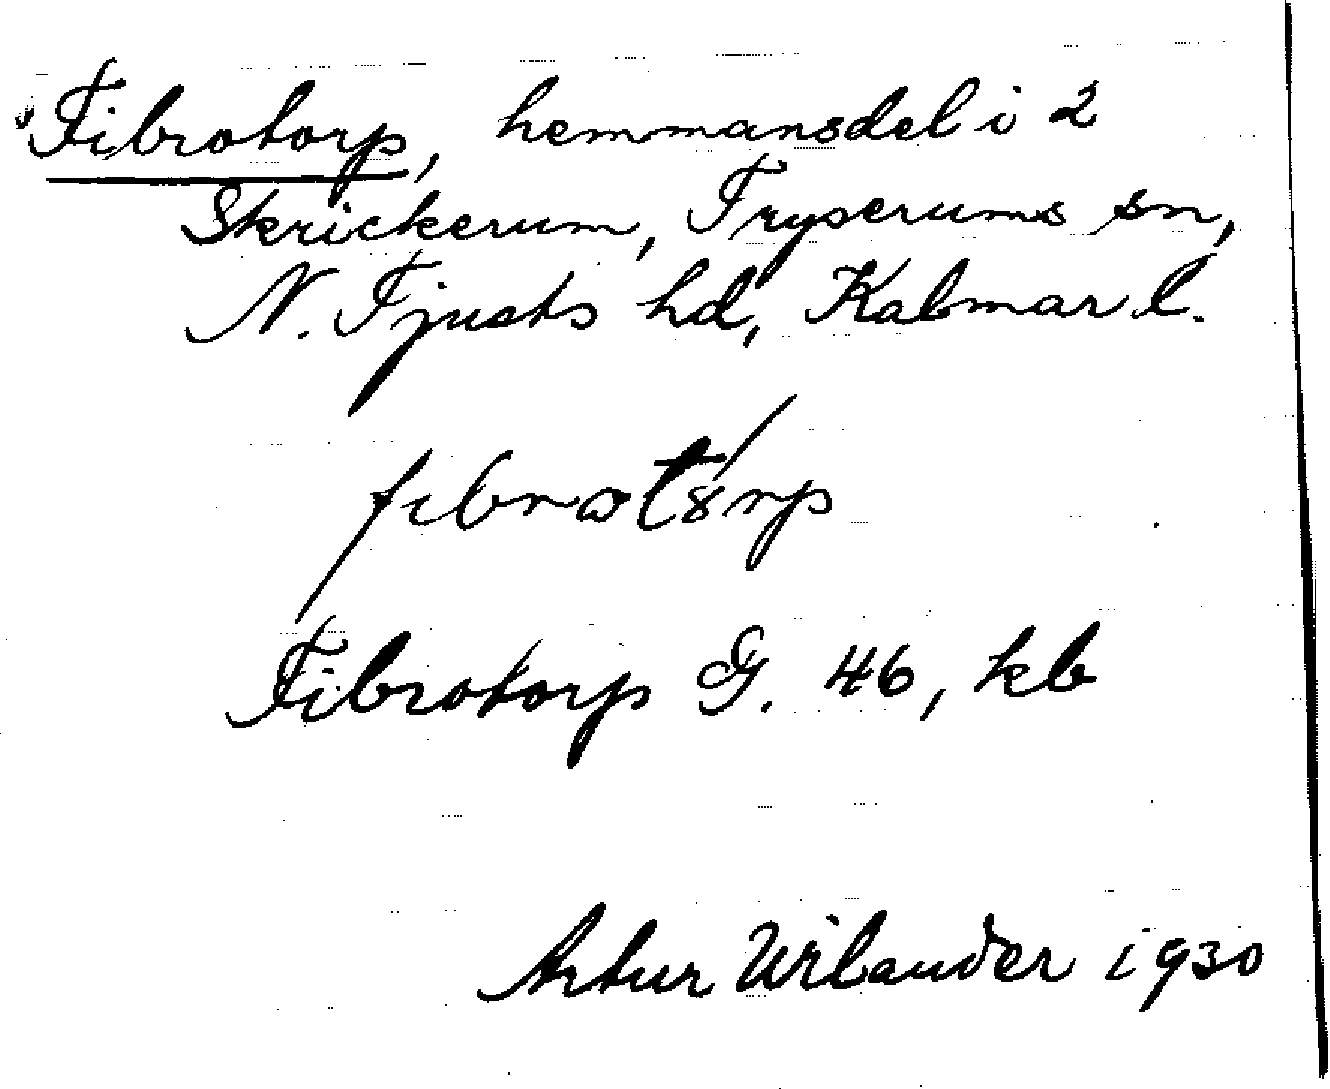 Fibrotorp, hemmansdel i 2
Skrickerum, Tryserums sn,
N. Tjusts hd, Kalmar l.
Fibrotorp G. 46, kb
Artur Wilander 1930